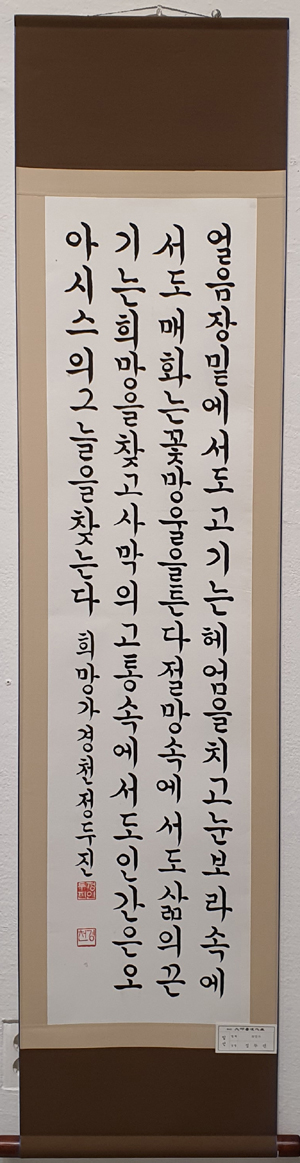 얼음장밑에서도고기는헤엄을치고눈보라속에
서도매화는꽃망울을튼다절망속에서도삶의끈
기는희망을찾고사막의고통속에서도인간은오
아시스의그늘을찾는다 희망가 경천정두진